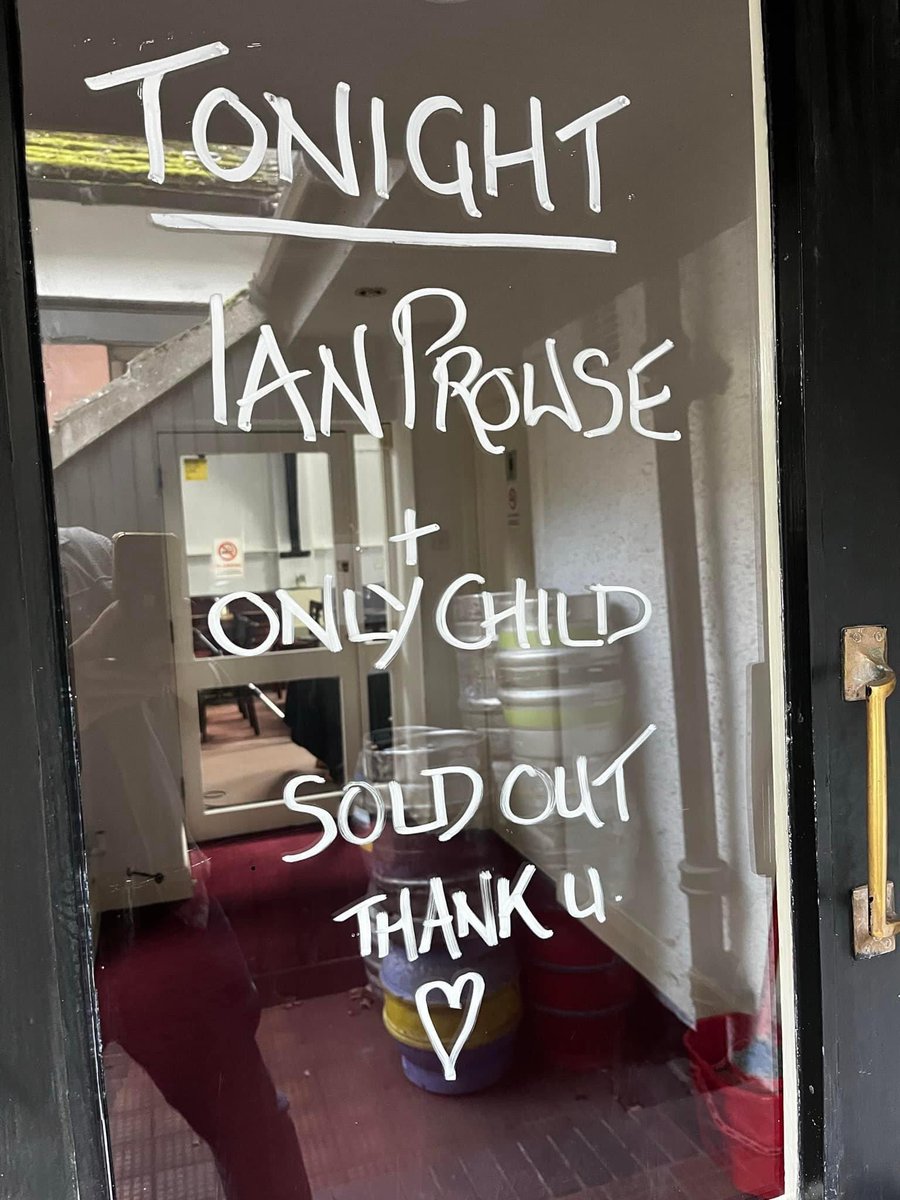 TONIGHT
IAN PROWSE
+
ONLY CHILD
SOLD OUT
THANK U.